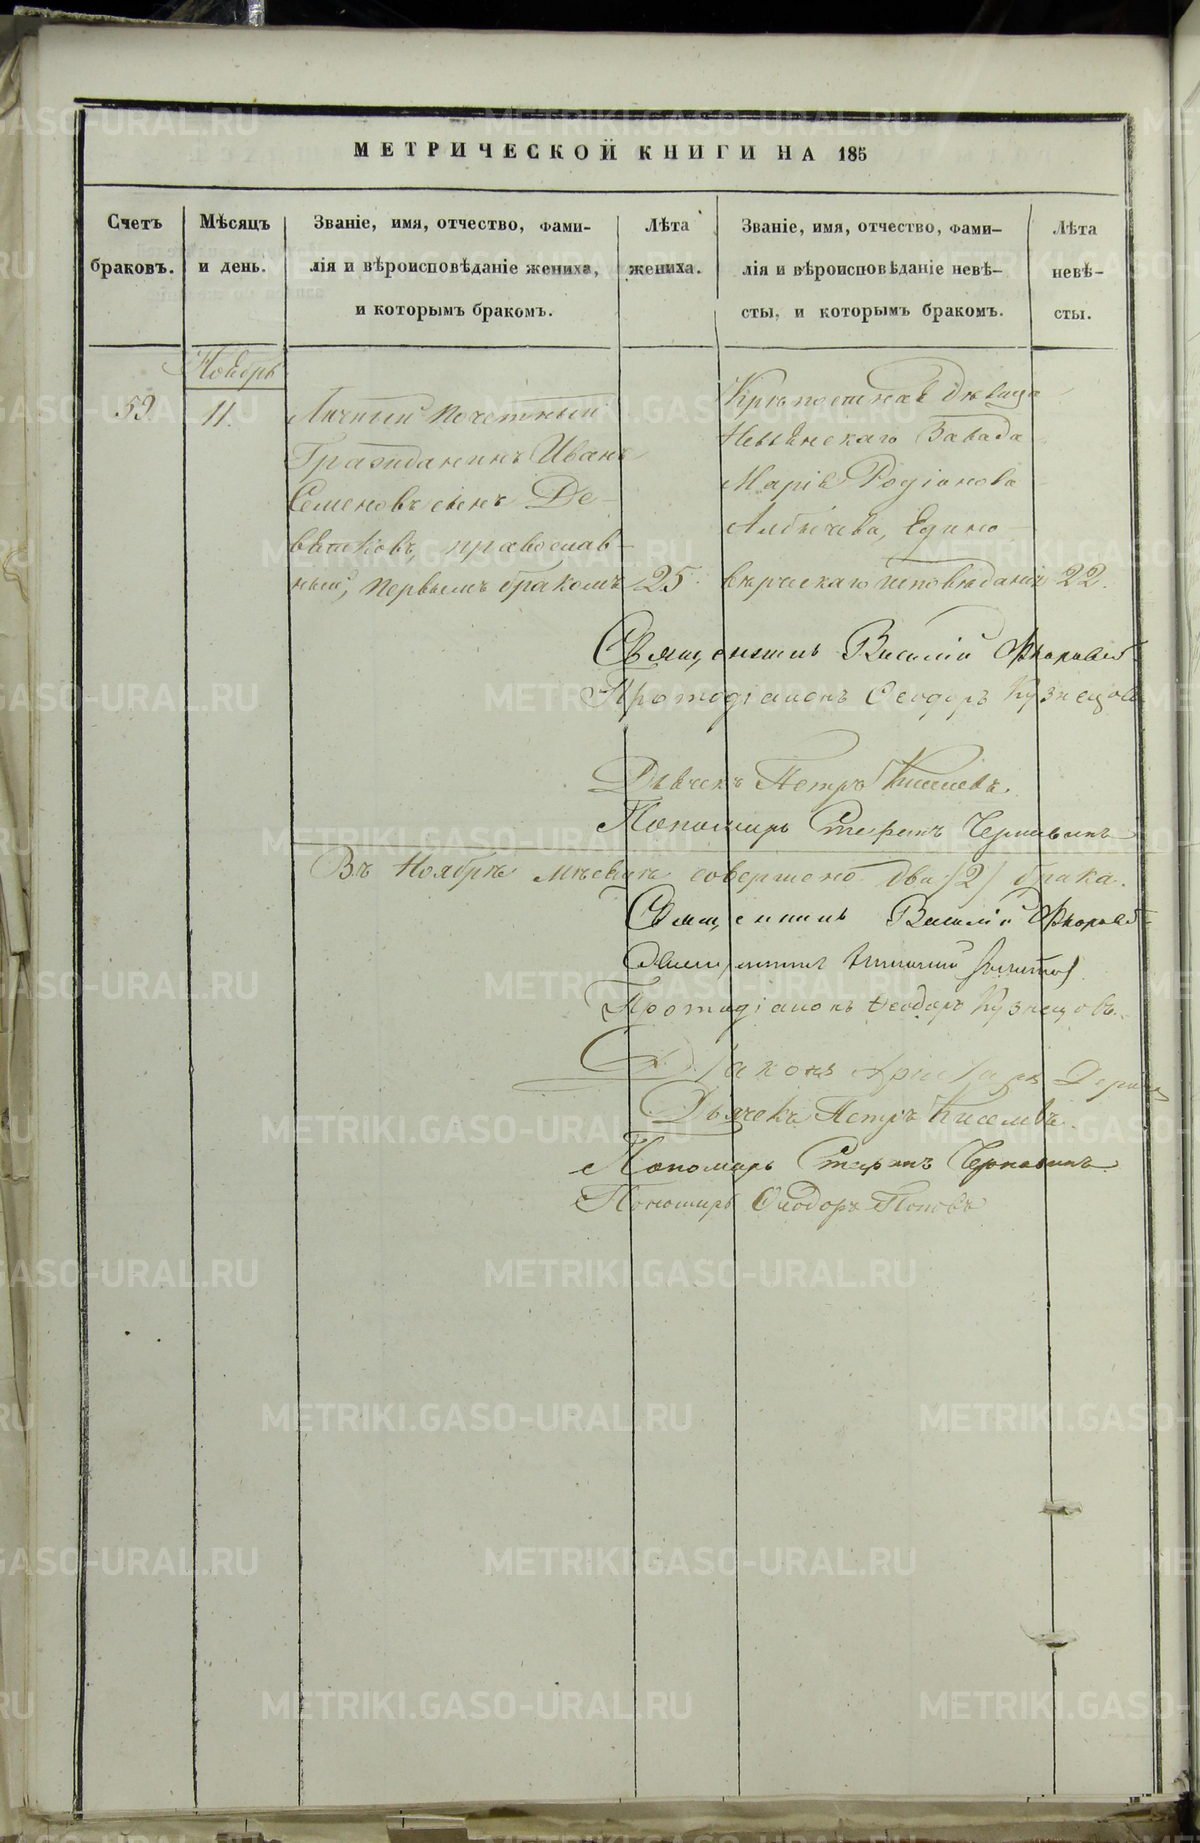 МЕТРИЧЕСКОЙ КНИГИ НА 185
Счетъ браковъ.
Мѣсяцъ и день.
Званіе, имя, отчество, фами-
лія и вѣроисповѣданіе жениха,
и которымъ бракомъ.
Лѣта жениха.
Званіе, имя, отчество, фами-
лія и вѣроисповѣданіе невѣ-
сты, и которымъ бракомъ.
Лѣта невѣ-
сты.
Ноябрь
59.
11.
Личный почетный
Гражданинъ Иванъ
Семеновъ сынъ Де-
вятковъ, православ-
ный, первымъ бракомъ
25.
Крѣпостная дѣвица
Невьянскаго Завода
Марія Родіонова
Албычева, Едино-
вѣрческаго исповѣданія
22.
Священникъ Василій
Протодіаконъ Ѳеодоръ Кузнецовъ
Дьячекъ Петръ Киселевъ.
Пономарь Стефанъ Чернавинъ
Въ Ноябрѣ мѣсяцѣ совершено два /2/ брака.
Священникъ Василій
Священникъ
Протодіаконъ Ѳеодоръ Кузнецовъ.
Діаконъ
Дьячекъ Петръ Киселевъ.
Пономарь Стефанъ Чернавинъ
Пономарь Ѳеодоръ Поповъ
METRIKI.GASO-URAL.RU